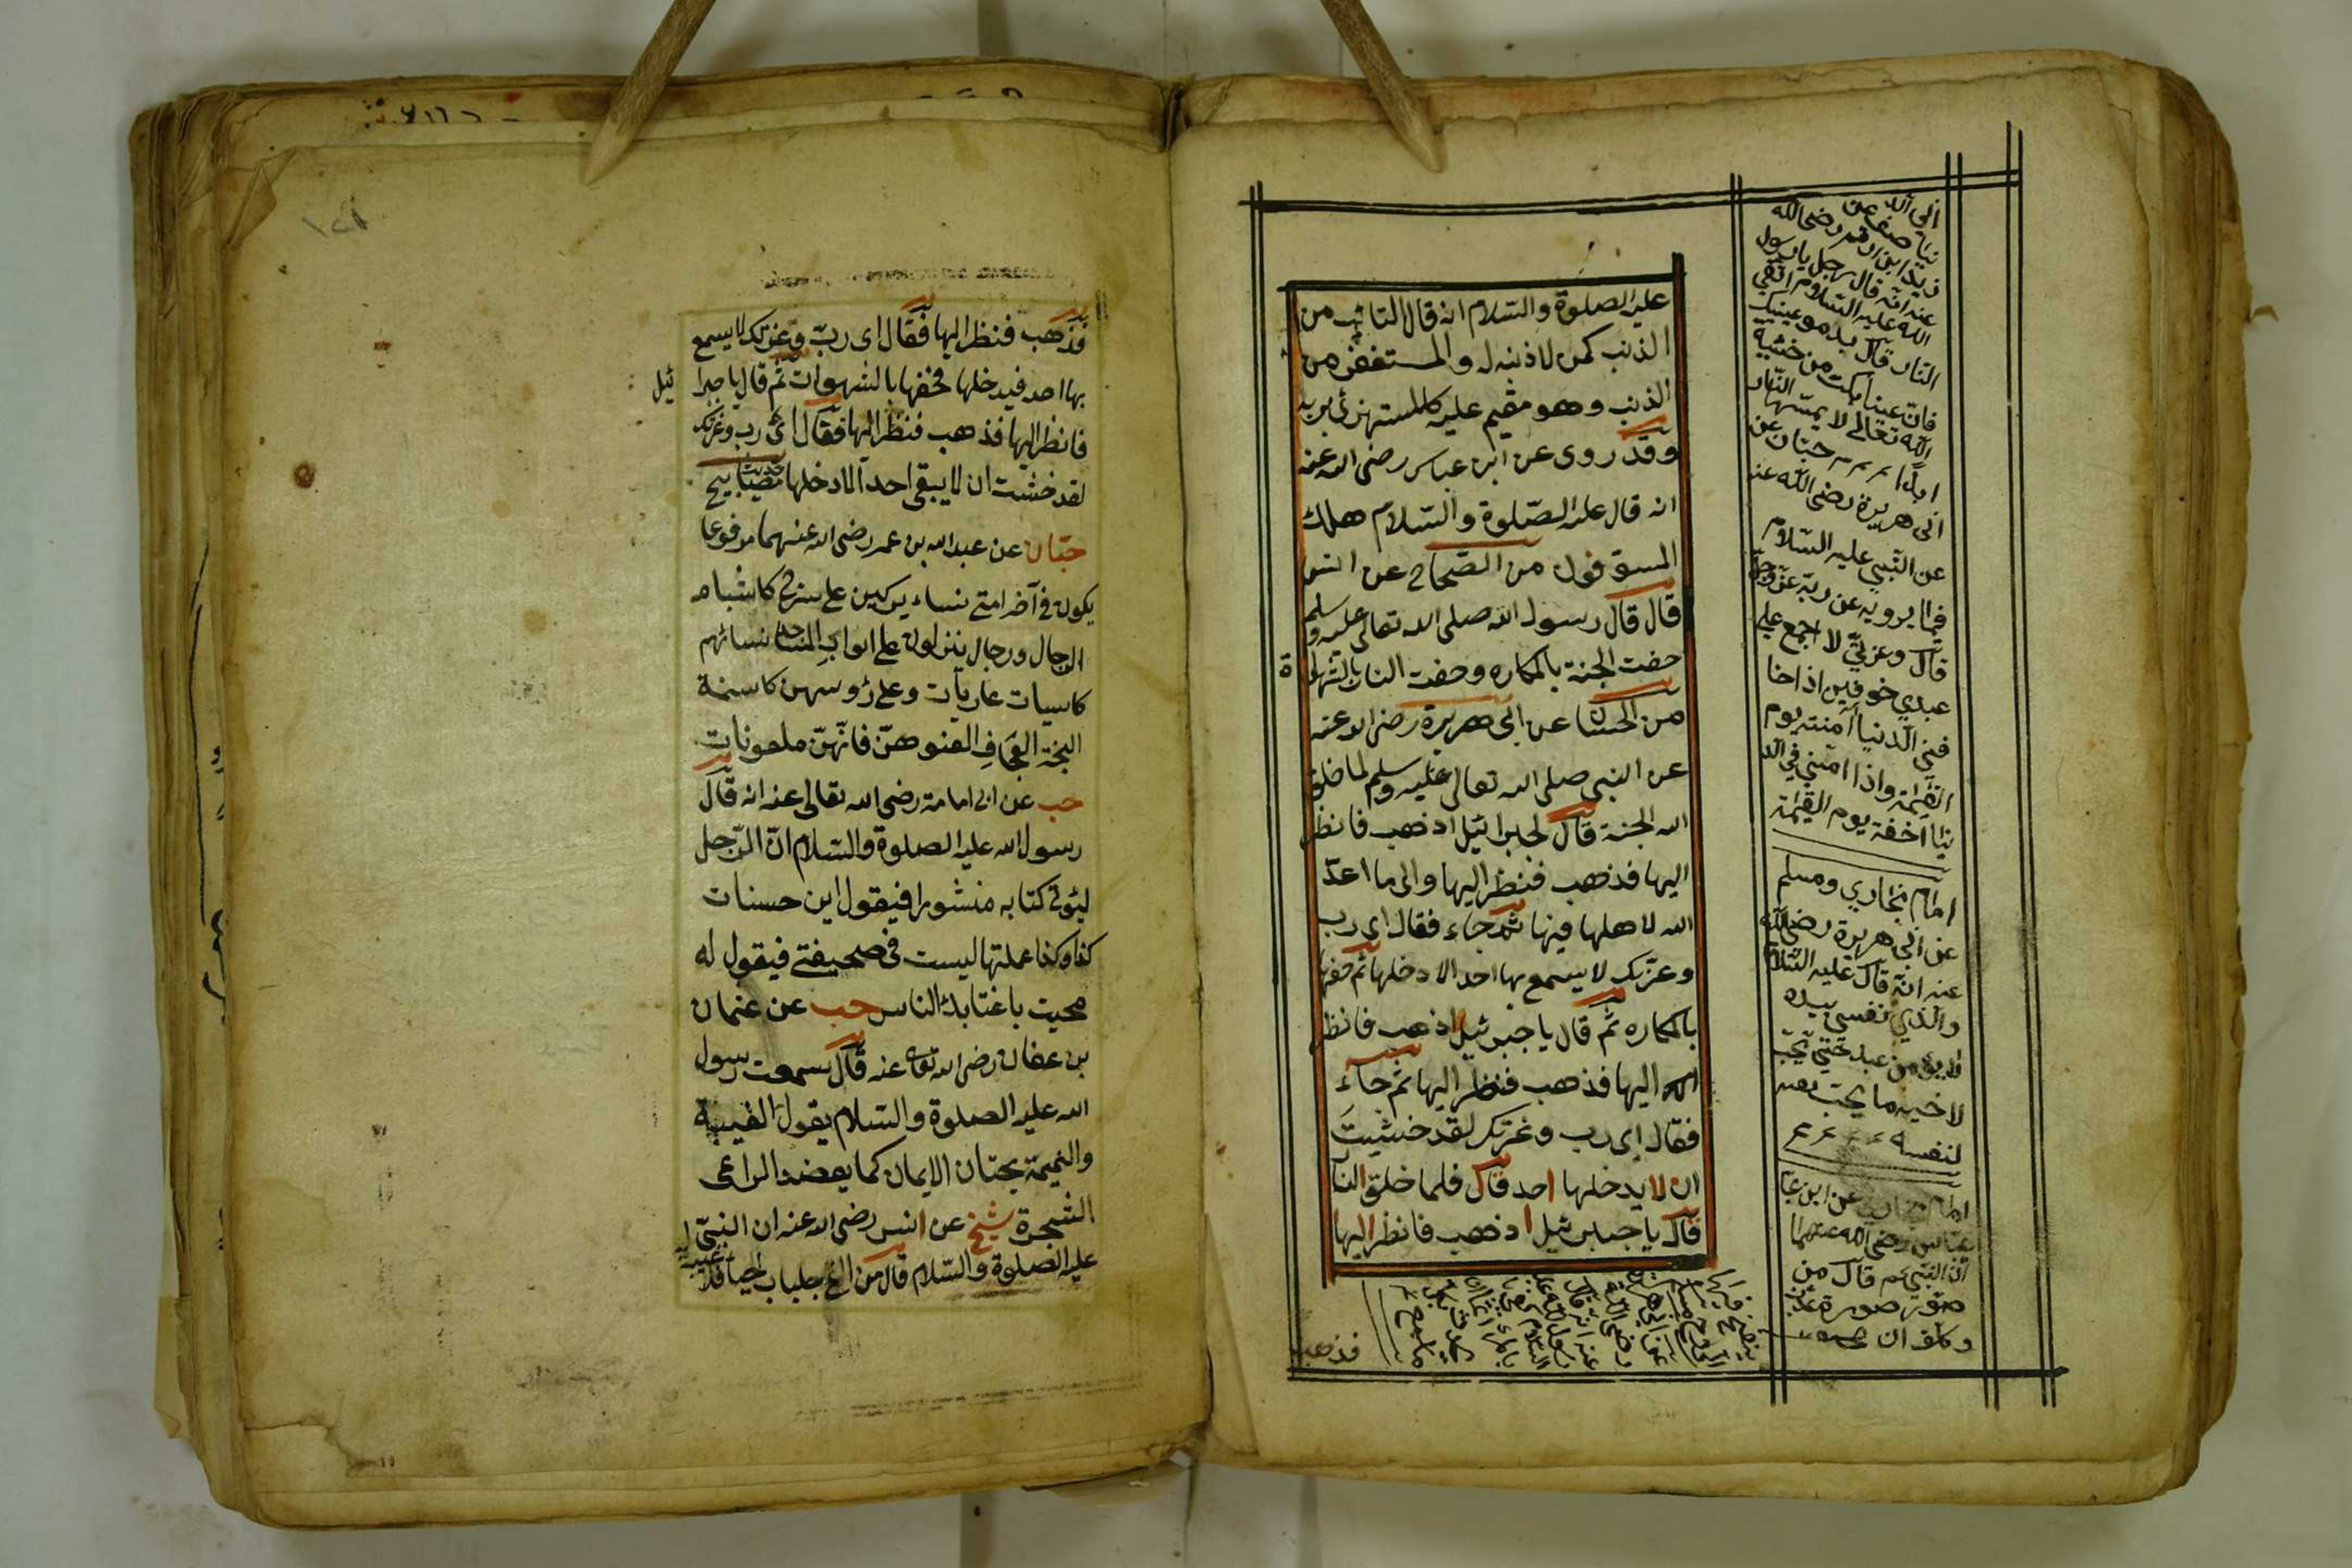 عليه الصلوة والسّلام انه قال التائب من
الذنب كمن لا ذنب له والمستغفر من
الذنب وهو مقيم عليه كالمستهزئ بربه
وقد روى عن ابن عباس رضى الله عنه
انه قال عليه الصّلوة والسّلام هلك
المسوّفون من الصّحاح عن انس
قال قال رسول الله صلى الله تعالى عليه وسلم
حفت الجنة بالمكاره وحفت النار بالشهوا
ة
من الحسان عن ابى هريرة رضى الله عنه
عن النبى صلى الله تعالى عليه وسلم لما خلق
الله الجنة قال لجبرائيل اذهب فانظر
اليها فذهب فنظر اليها والى ما اعدّ
الله لاهلها فيها ثم جاء فقال اى رب
وعزتك لا يسمع بها احد الا دخلها ثم حفها
بالمكاره ثم قال يا جبرئيل اذهب فانظر
اليها فذهب فنظر اليها ثم جاء
فقال اى رب وعزتك لقد خشيت
ان لا يدخلها احد قال فلما خلق النا
قال يا جبرئيل اذهب فانظر اليها
فذهب
نيا صف عن
زيد ابن ارقم رضى الله
عنه انّه قال رجل يا رسول
الله عليه السّلام اتّقى
النار قال بدموع عينيك
فانّ عينا بكت من خشية
الله تعالى لا يمسّها النّار
ابدًا حبّان عن
ابى هريرة رضى الله عنه
عن النّبي عليه السّلام
فيما يرويه عن ربّه عزّ وجلّ
قال وعزتي لا اجمع على
عبدي خوفين اذا خا
فني الدنيا أمنته يوم
القيٰمة واذا امنني في الد
نيا اخفته يوم القيٰمة
امام بخاري ومسلم
عن ابي هريرة رضى الله
عنه انّه قال عليه السّلام
والّذي نفسي بيده
لا يؤمن عبد حتّى يحبّ
لاخيه ما يحبّ
لنفسه
عن ابن عبا
عباس رضى الله عنهما
انّ النّبي عم قال من
صوّر صورة عذّب
وكلف ان
فذهب فنظر اليها فقال اى ربّ وعزتك لا يسمع
بها احد فيدخلها فحفها بالشهوات ثم قال يا جبرا ئيل
فانظر اليها فذهب فنظر اليها فقال اى رب وعزتك
لقد خشيت ان لا يبقى احد الا دخلها حديث مصابيح
حبّان عن عبد الله بن عمر رضى الله عنهما مرفوعا
يكون فى آخر امتى نساء يركبن على سرج كاشباه
الرجال ورجال ينزلون على ابواب المساجد نسائهم
كاسيات عاريات وعلى رؤوسهن كاسنمة
البخت العجاف العنوهنّ فانّهنّ ملعونات
حب عن ابى امامة رضى الله تعالى عنه انه قال
رسول الله عليه الصلوة والسّلام انّ الرّجل
ليؤتى كتابه منشورا فيقول اين حسنات
كذا وكذا عملتها ليست فى صحيفتى فيقول له
محيت باغتابك الناس حب عن عثمان
بن عفان رضى الله تعا عنه قال سمعت رسول
الله عليه الصلوة والسّلام يقول الغيبة
والنميمة يحتان الايمان كما يعضد الراعى
الشجرة شيخ عن انس رضى الله عنه ان النبىّ
عليه الصلوة والسّلام قال من القى جلباب الحيا فلا غيبة له